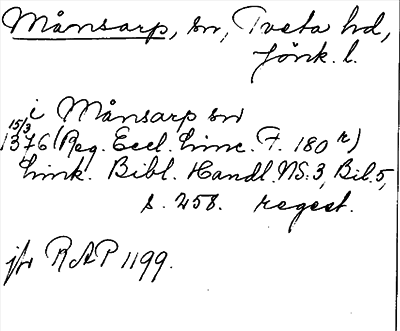 Månsarp, sn, Tveta hd,
Jönk. l.
i Månsarp sn
15/3
1376 (Reg. Eccl. Linc. F. 180 r)
Link. Bibl. Handl. NS. 3, Bil. 5,
s. 258. regest.
jfr RAP 1199.